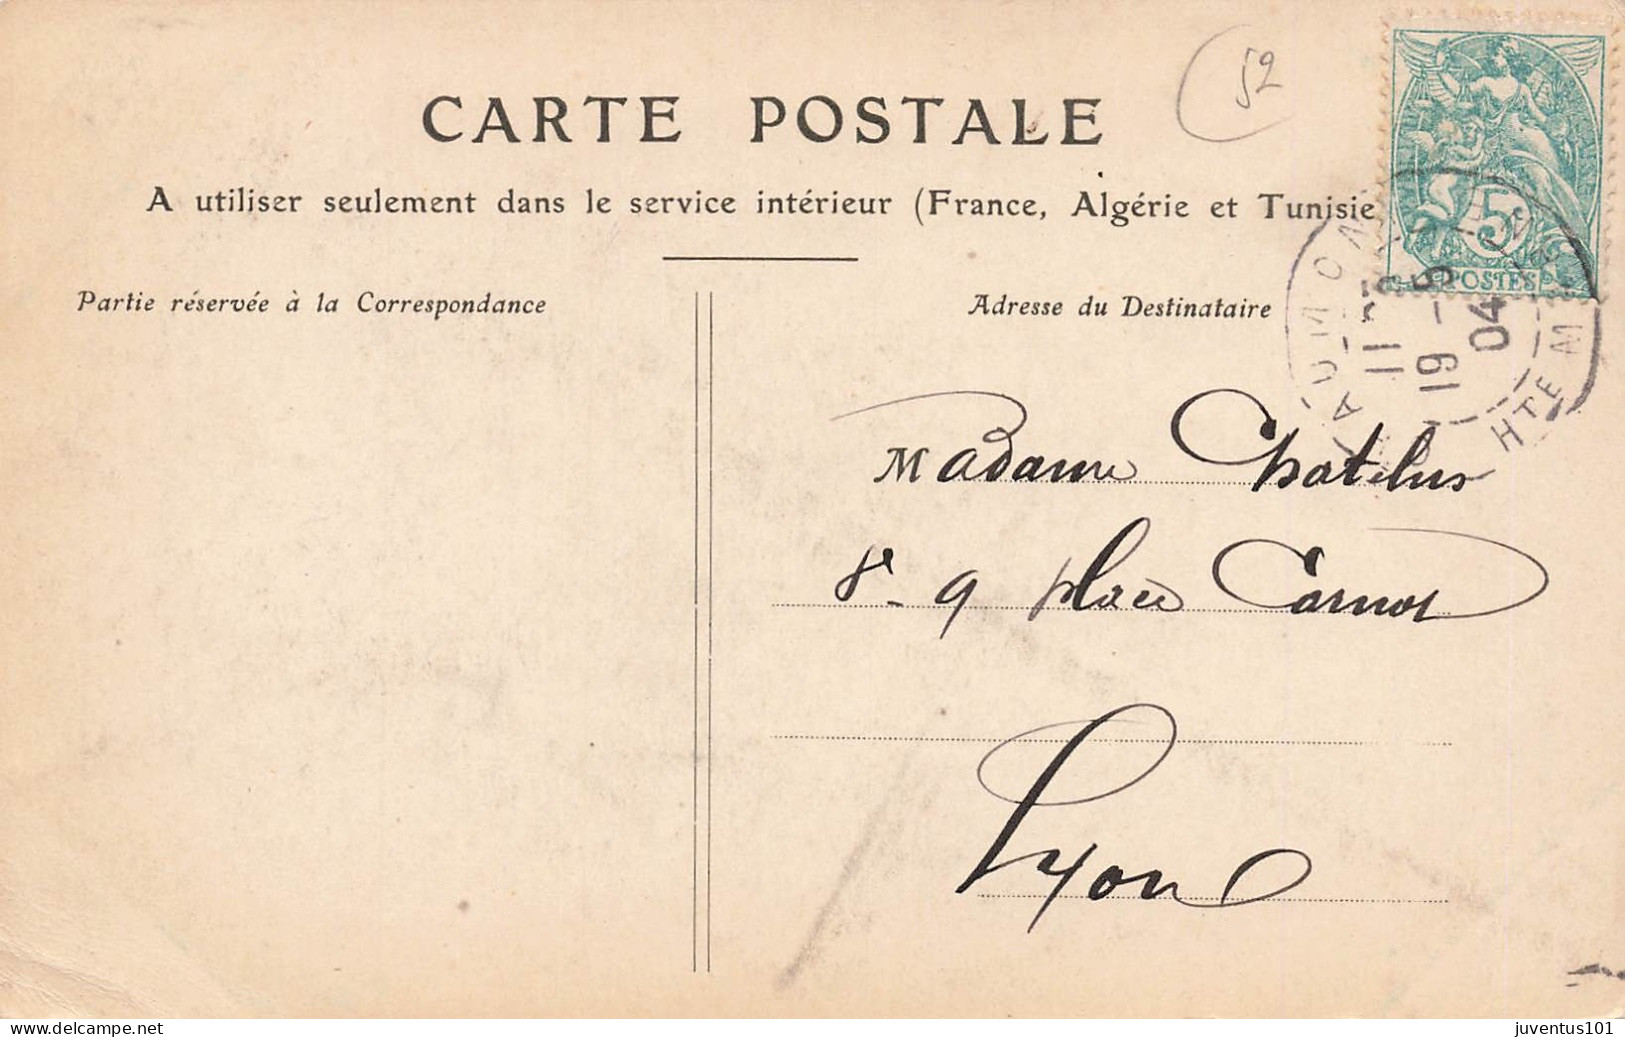 52
CARTE POSTALE
A utiliser seulement dans le service intérieur (France, Algérie et Tunisie
Partie réservée à la Correspondance
Adresse du Destinataire
5
POSTES
CHAUMONT
19 - 5
04
HTE M
Madame Chatelus
8 - 9 place Carnot
Lyon
www.delcampe.net
juventus101